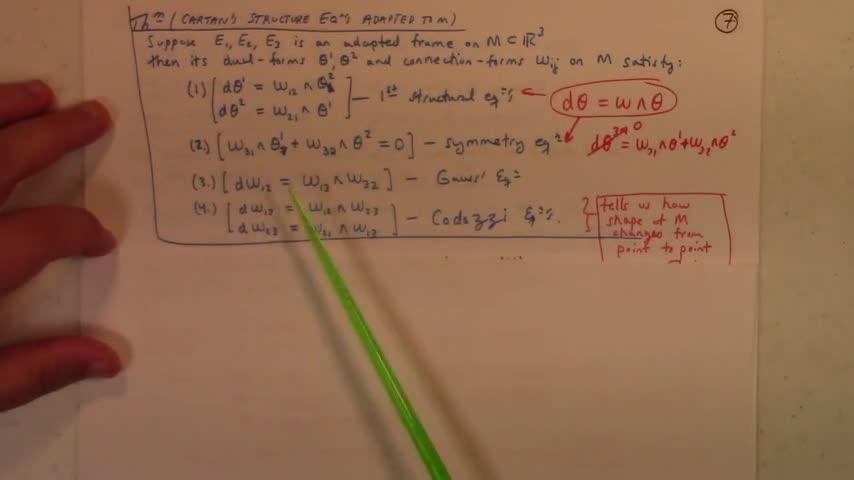 Thᵐ (CARTAN'S STRUCTURE EQⁿˢ ADAPTED TO M)
⑦
Suppose E₁, E₂, E₃ is an adapted frame on M ⊂ ℝ³
then its dual-forms θ¹, θ² and connection-forms ωᵢⱼ on M satisfy:
(1) [ dθ¹ = ω₁₂ ∧ θ² ] — 1ˢᵗ structural eqⁿˢ ← dθ = ω ∧ θ
dθ² = ω₂₁ ∧ θ¹
(2.) [ω₃₁ ∧ θ¹ + ω₃₂ ∧ θ² = 0] — symmetry eqⁿ dθ³ 0 = ω₃₁∧θ¹+ω₃₂∧θ²
(3.) [ dω₁₂ = ω₁₃ ∧ ω₃₂ ] — Gauss' Eqⁿ
(4.) [ dω₁₃ = ω₁₂ ∧ ω₂₃ ] — Codazzi Eqⁿˢ.
dω₂₃ = ω₂₁ ∧ ω₁₃
tells us how
shape of M
changes from
point to point